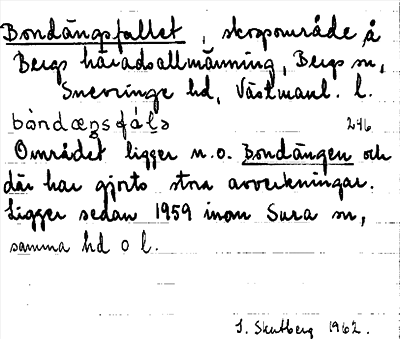 Bondängsfallet, skogsområde å
Bergs häradsallmänning, Bergs sn,
Snevringe hd, Västmanl. l.
bòndæŋsfálə 246
Området ligger n.o. Bondängen och
där har gjorts stora avverkningar.
Ligger sedan 1959 inom Sura sn,
samma hd o l.
J. Skutberg 1962.